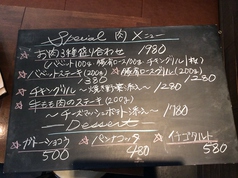 Special 肉メニュー
☆ お肉3種盛り合わせ 1980
(ハベット100g 豚肩ロース100g チキングリル1枚)
☆ ハベットステーキ(200g) 1380
☆ 豚肩ロースグリル(200g) 1280
☆ チキングリル 〜焼き野菜添え〜 1280
☆ 牛もも肉のステーキ(200g)
〜チーズマッシュポテト添え〜 1780
Dessert
☆ ガトーショコラ 500
☆ パンナコッタ 480
☆ イチゴタルト 580